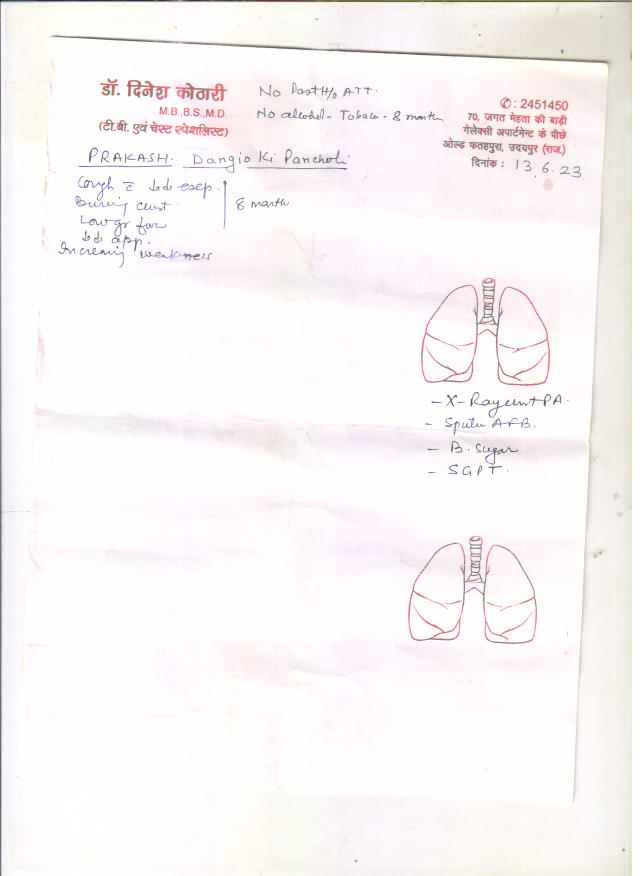 डॉ. दिनेश कोठारी
M.B.,B.S.,M.D.
(टी.बी. एवं चेस्ट स्पेशलिस्ट)
No Past H/o ATT.
No alcohol - Tobacco - 8 month
✆: 2451450
70, जगत मेहता की बाड़ी
गेलेक्सी अपार्टमेन्ट के पीछे
ओल्ड फतहपुरा, उदयपुर (राज.)
दिनांक : 13.6.23
PRAKASH. Dangio Ki Pancholi
Cough
8 month
app.
Increasing weakness
- X-Ray PA.
- Sputu AFB.
- B. Sugar
- SGPT.